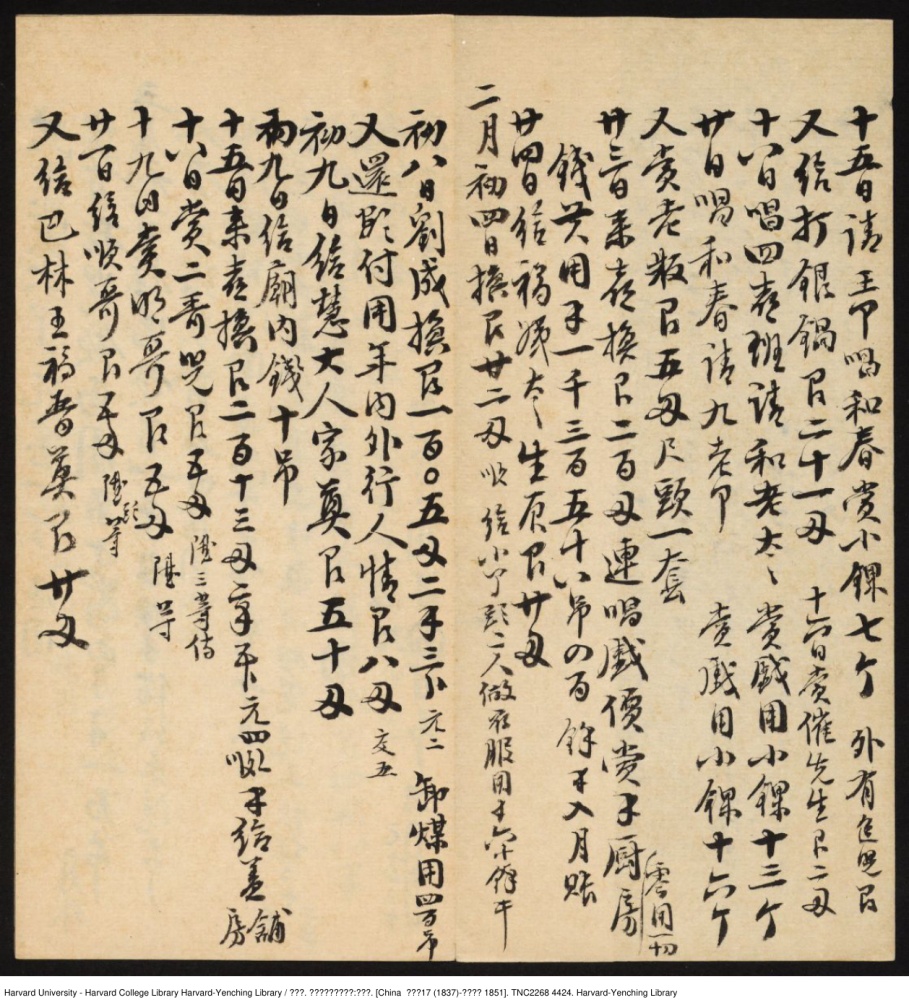 十五日請王卩唱和春賞小錁七个 外有
又給打銀鍋艮二十一両 十六日賞催先生艮二両
十八日唱四喜班請和老太〻賞戲用小錁十三个
廿日唱和春請九老卩 賞戲用小錁十六个
又賞老敖艮五両尺頭一套
廿三日來喜換艮二百両連唱戲價賞手厨房零用一切
錢共用手一千三百五十八吊〇百餘手入月賬
廿四日給福姨太〻生辰艮廿両
二月初四日換艮廿二両 給小丫頭二人做衣服用手六十餘千
初八日劉成換艮一百〇五両二手三卜元二 卸煤用四百吊
又還付用年內外行人情艮八両
初九日給慧大人家奠艮五十両
初九日給廟內錢十吊
十五日來喜換艮二百十三両 元四 手給善舖房
十八日賞二哥艮五両 陞三等侍
十九日賞哥艮五両 陞等
廿一日給順哥艮五両 陞等
又給巴林王福晉奠艮廿両
Harvard University - Harvard College Library Harvard-Yenching Library / ???. ?????????:???. [China ???17 (1837)-???? 1851]. TNC2268 4424. Harvard-Yenching Library